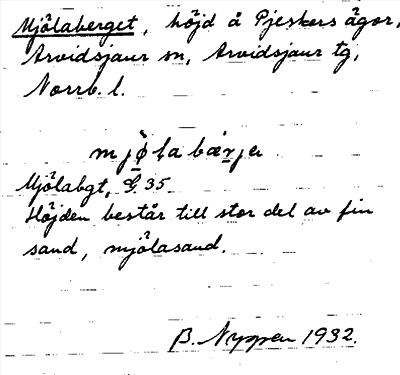 Mjölaberget, höjd å Pjeskers ägor,
Arvidsjaur sn, Arvidsjaur tg,
Norrb. l.
mjø̀ḷa bæ̀rjer
Mjölabgt, G. 35
Höjden består till stor del av fin
sand, mjölasand.
B. Nyppen 1932.